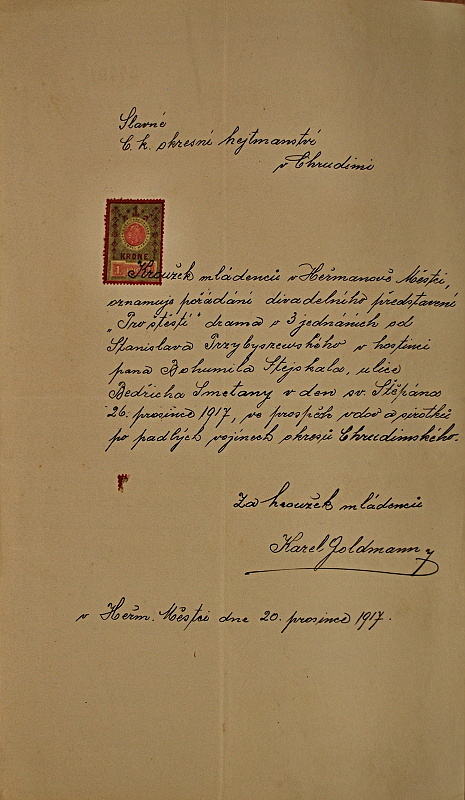 Slavné
C. k. okresní hejtmanství
v Chrudimi
1
KRONE
1
Kroužek mládenců v Heřmanově Městci,
oznamuje pořádání divadelního představení
„Pro štěstí" drama o 3 jednáních od
Stanislava Przybyszewského v hostinci
pana Bohumila Stejskala, ulice
Bedřicha Smetany v den sv. Štěpána
26. prosince 1917, ve prospěch vdov a sirotků
po padlých vojínech okresu Chrudimského.
Za kroužek mládenců
Karel Goldmann
v Heřm. Městci dne 20. prosince 1917.